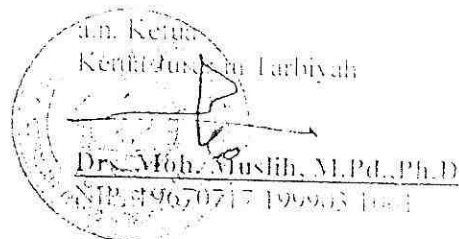 a.n. Ketua
Ketua Jurusan Tarbiyah
Drs. Moh. Muslih, M.Pd., Ph.D
NIP. 19670717 199903 1001